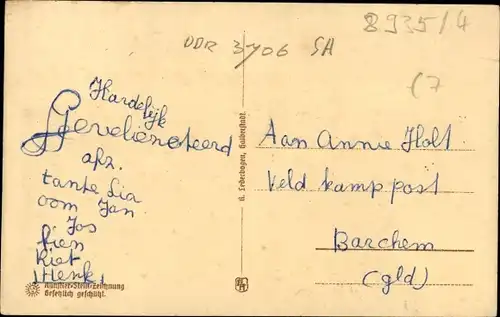 8935/4
DDR 3706 SA
(7
Hardelijk
Gevelieneteerd
afz.
tante Lia
oom Jan
Jos
fien
Riet
Henk
Aan Annie Holt
Veld kamp post
Barchem
(gld)
G. Lederbogen, Halberstadt.
Künstler-Stein-Zeichnung
Gesetzlich geschützt.